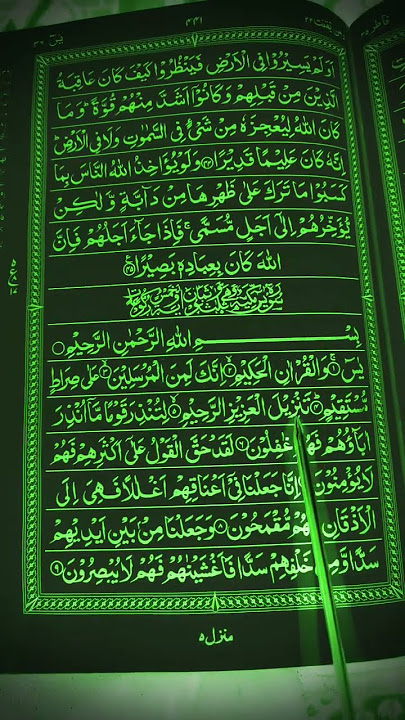 یٰسٓ ٣٦
٤٤١
ومن یقنت ٢٢
فاطر ٣٥
اَوَلَمْ یَسِیْرُوْا فِی الْاَرْضِ فَیَنْظُرُوْا كَیْفَ كَانَ عَاقِبَةُ
الَّذِیْنَ مِنْ قَبْلِهِمْ وَكَانُوْۤا اَشَدَّ مِنْهُمْ قُوَّةً ؕ وَمَا
كَانَ اللّٰهُ لِیُعْجِزَهٗ مِنْ شَیْءٍ فِی السَّمٰوٰتِ وَلَا فِی الْاَرْضِ ؕ
اِنَّهٗ كَانَ عَلِیْمًا قَدِیْرًا ﴿٤٤﴾ وَلَوْ یُؤَاخِذُ اللّٰهُ النَّاسَ بِمَا
كَسَبُوْا مَا تَرَكَ عَلٰی ظَهْرِهَا مِنْ دَآبَّةٍ وَّلٰكِنْ
یُّؤَخِّرُهُمْ اِلٰۤی اَجَلٍ مُّسَمًّی ۚ فَاِذَا جَآءَ اَجَلُهُمْ فَاِنَّ
اللّٰهَ كَانَ بِعِبَادِهٖ بَصِیْرًا ﴿٤٥﴾
بِسْمِ اللّٰهِ الرَّحْمٰنِ الرَّحِیْمِ
یٰسٓ ﴿١﴾ وَالْقُرْاٰنِ الْحَكِیْمِ ﴿٢﴾ اِنَّكَ لَمِنَ الْمُرْسَلِیْنَ ﴿٣﴾ عَلٰی صِرَاطٍ
مُّسْتَقِیْمٍ ﴿٤﴾ تَنْزِیْلَ الْعَزِیْزِ الرَّحِیْمِ ﴿٥﴾ لِتُنْذِرَ قَوْمًا مَّاۤ اُنْذِرَ
اٰبَآؤُهُمْ فَهُمْ غٰفِلُوْنَ ﴿٦﴾ لَقَدْ حَقَّ الْقَوْلُ عَلٰۤی اَكْثَرِهِمْ فَهُمْ
لَا یُؤْمِنُوْنَ ﴿٧﴾ اِنَّا جَعَلْنَا فِیْۤ اَعْنَاقِهِمْ اَغْلٰلًا فَهِیَ اِلَی
الْاَذْقَانِ فَهُمْ مُّقْمَحُوْنَ ﴿٨﴾ وَجَعَلْنَا مِنْۢ بَیْنِ اَیْدِیْهِمْ
سَدًّا وَّمِنْ خَلْفِهِمْ سَدًّا فَاَغْشَیْنٰهُمْ فَهُمْ لَا یُبْصِرُوْنَ ﴿٩﴾
منزل ٥